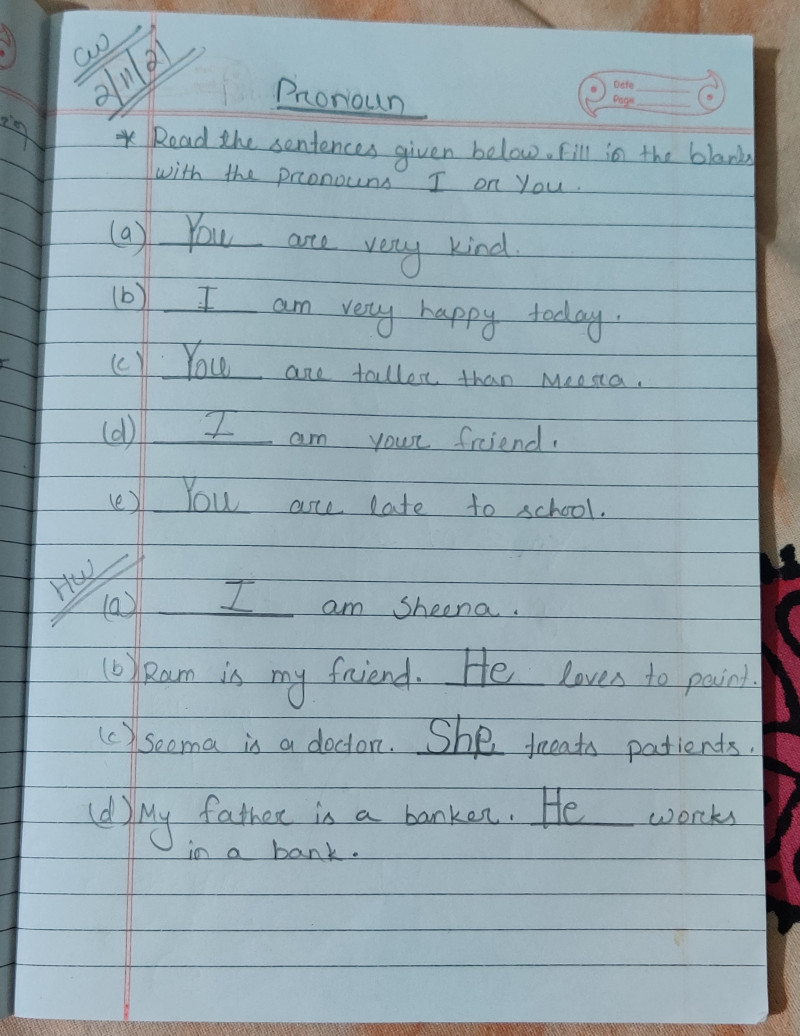 CW
2/11/21
Date
Page
Pronoun
* Read the sentences given below. Fill in the blanks
with the pronouns I or You.
(a) You are very kind.
(b) I am very happy today.
(c) You are taller than Meera.
(d) I am your friend.
(e) You are late to school.
HW
(a) I am Sheena.
(b) Ram is my friend. He loves to paint.
(c) Seema is a doctor. She treats patients.
(d) My father is a banker. He works
in a bank.